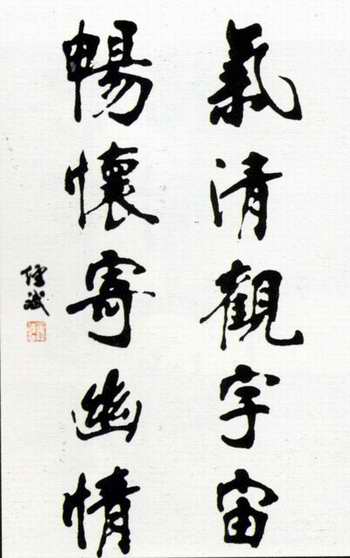 氣清觀宇宙
暢懷寄幽情